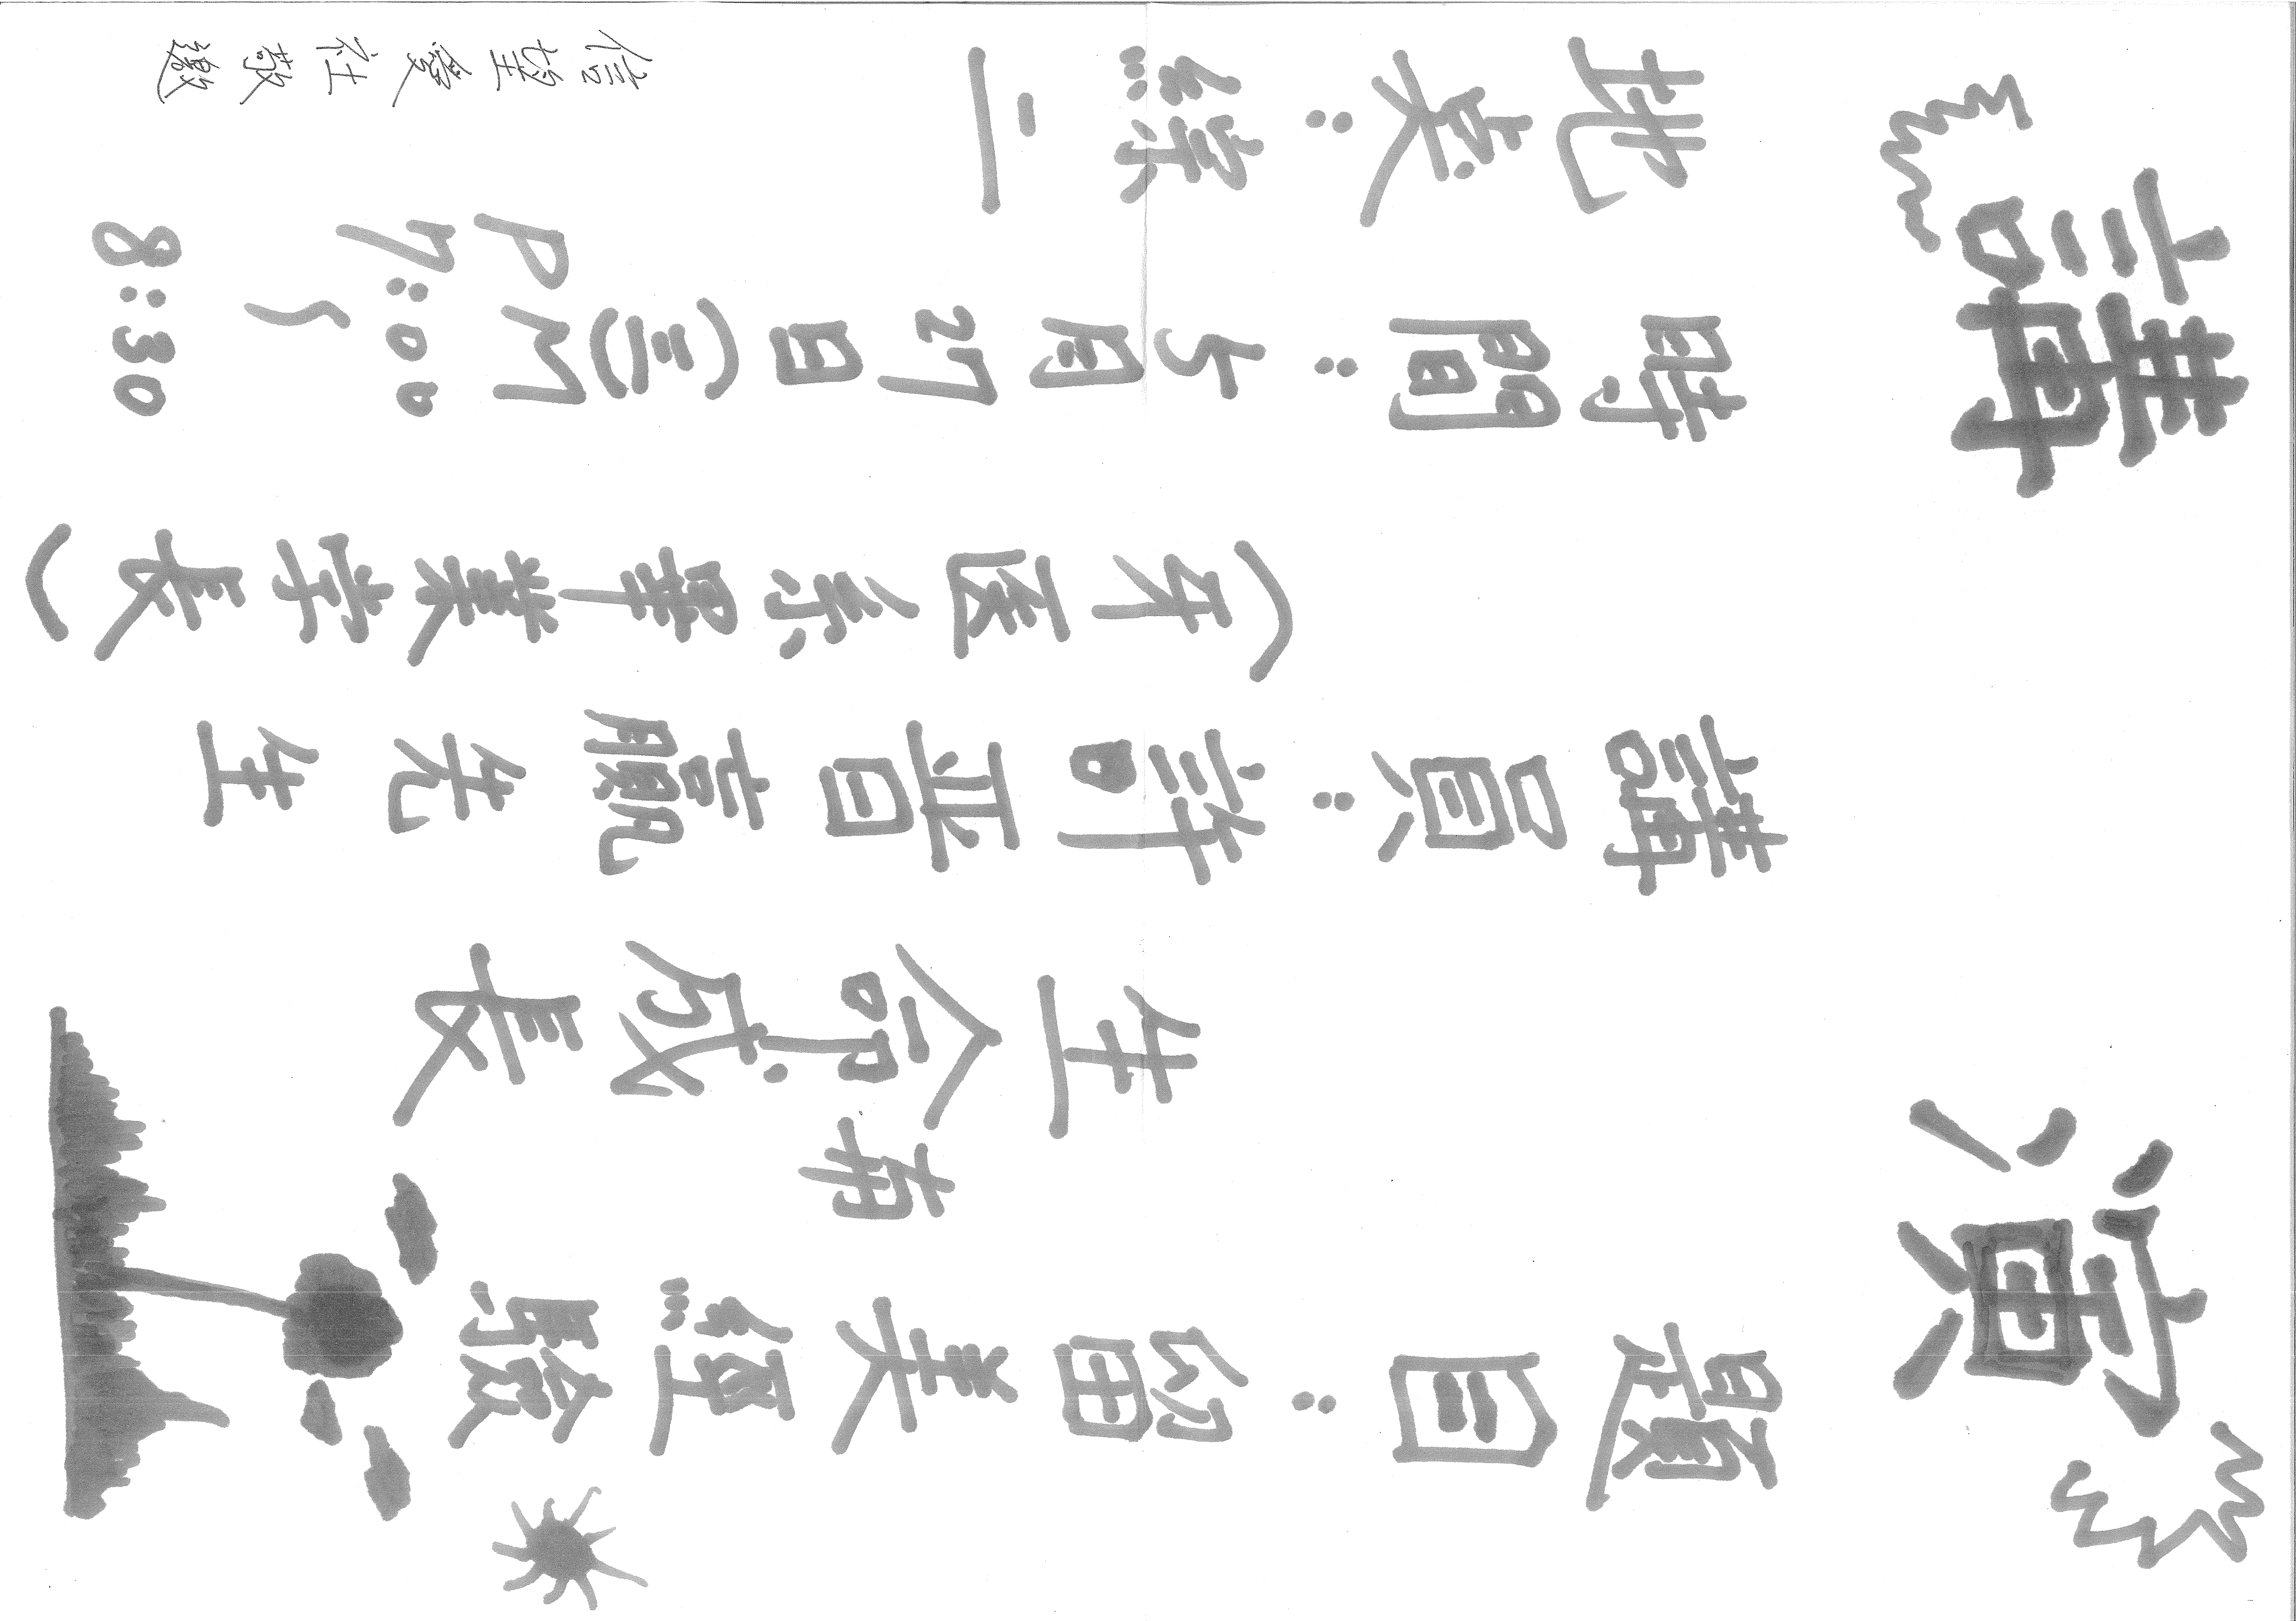 講演
題目：留美經驗
生命成長
講員：許晋贏先生
(牙医系畢業学長)
時間：5月27日(三)PM 7:00~8:30
地奌：綜二
信望愛社敬邀